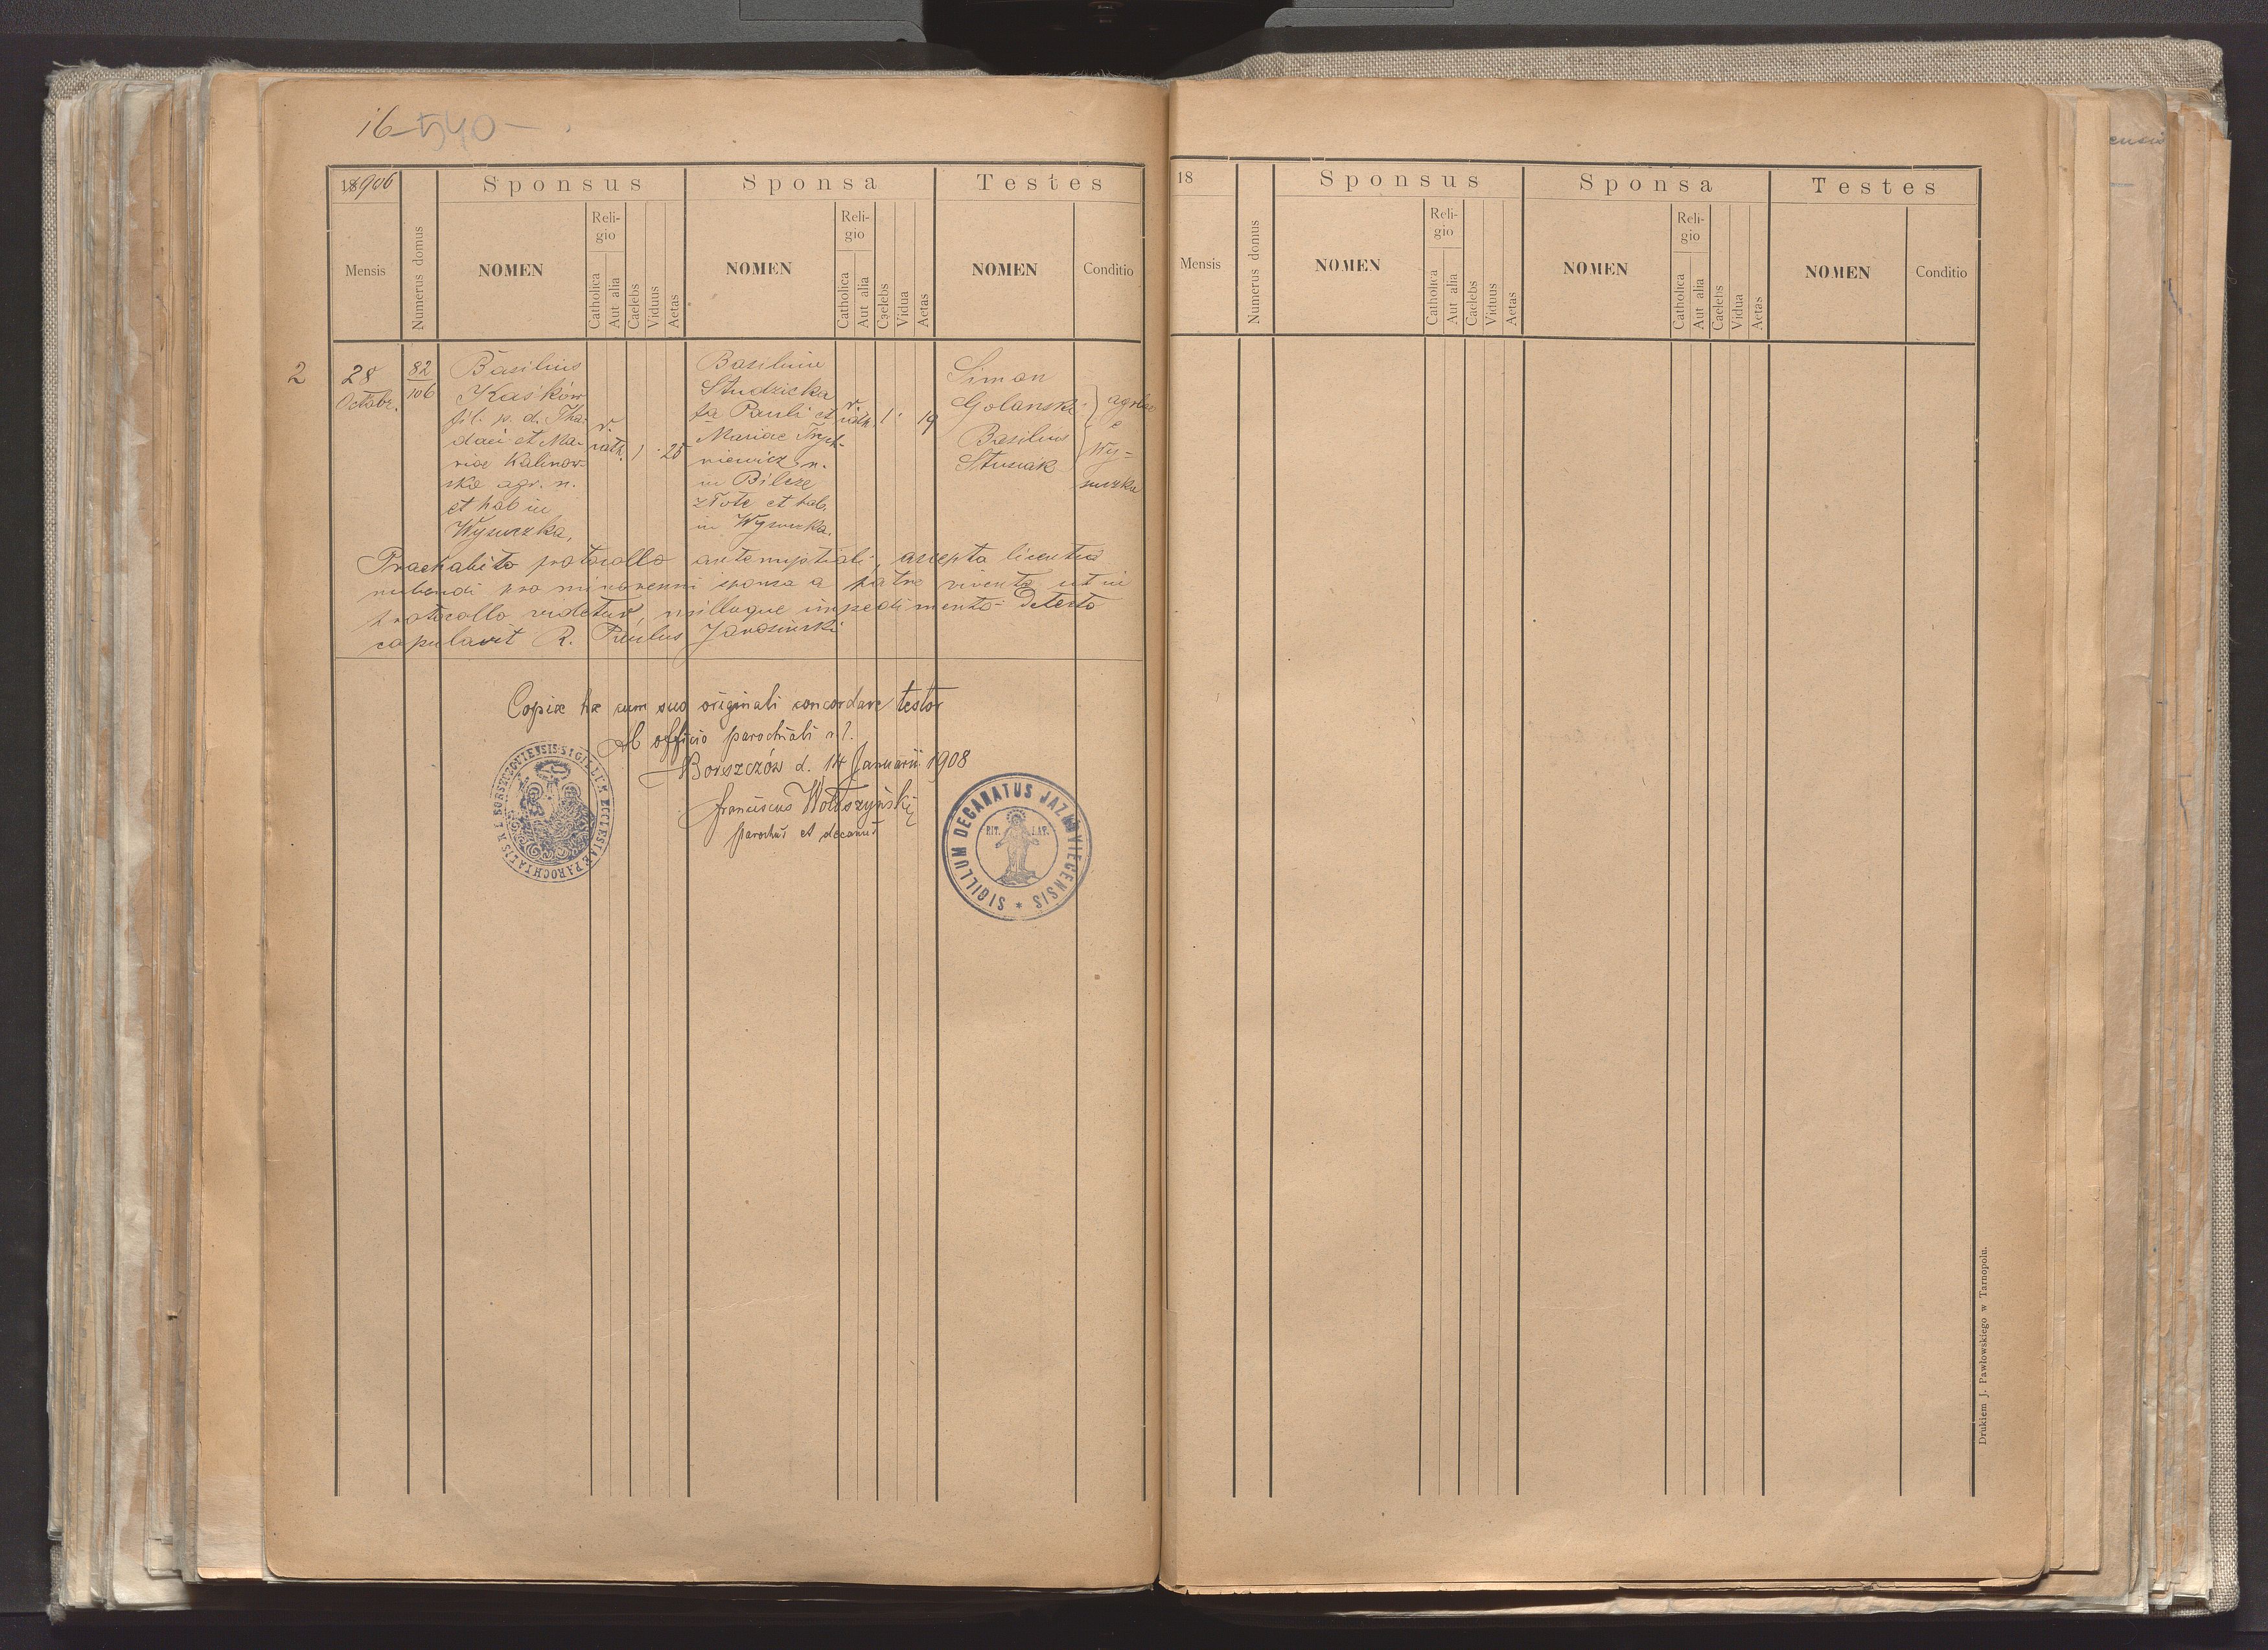 16 — 540 —
18906
Sponsus
Sponsa
Testes
Mensis
Numerus domus
NOMEN
Reli-
gio
Catholica
Aut alia
Caelebs
Viduus
Aetas
NOMEN
Reli-
gio
Catholica
Aut alia
Caelebs
Vidua
Aetas
NOMEN
Conditio
2
28
Octobr.
82
106
Basilius
Kaśków
fil. p. d. Tha-
daei et Ma-
riae Kalinow-
ska agr. n.
et hab in
Wysuczka,
r.
cath.
1
25
Basilina
Studzicka
fa Pauli et
Mariae Tryh-
niewicz n.
in Bilcze
złote et hab.
in Wysuczka.
r.
cath.
1
19
Simon
Golanski
Basilius
Stusiak
agrcolae
e
Wy-
suczka
Praehabito protocollo antenuptiali, accepta licentia
nubendi pro minorenni sponsa a patre vivente ut in
protocollo videtur, nulloque impedimento detecto
copulavit R. Paulus Jarosinski
Copiæ hæ cum suo originali concordare testor
Ab officio parochiali r. l.
Borszczów d. 14 Januarii 1908
Franciscus Wołoszyński
parochus et decanus
SIGILLUM ECCLESIAE PAROCHIALIS R. L. BORSZCZOVIENSIS
SIGILLUM DECANATUS JAZŁOVIECENSIS *
RIT. LAT.
18
Sponsus
Sponsa
Testes
Mensis
Numerus domus
NOMEN
Reli-
gio
Catholica
Aut alia
Caelebs
Viduus
Aetas
NOMEN
Reli-
gio
Catholica
Aut alia
Caelebs
Vidua
Aetas
NOMEN
Conditio
Drukiem J. Pawłowskiego w Tarnopolu.
ensis